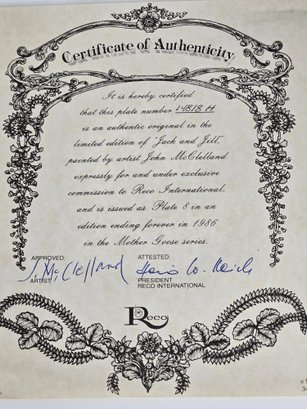 Certificate of Authenticity
It is hereby certified
that this plate number
is an authentic original in the
limited edition of "Jack and Jill",
painted by artist John McClelland
expressly for and under exclusive
commission to Reco International,
and is issued as Plate 8 in an
edition ending forever in 1986
in the Mother Goose series.
APPROVED: ATTESTED:
J. McClelland
ARTIST PRESIDENT
RECO INTERNATIONAL
Reco